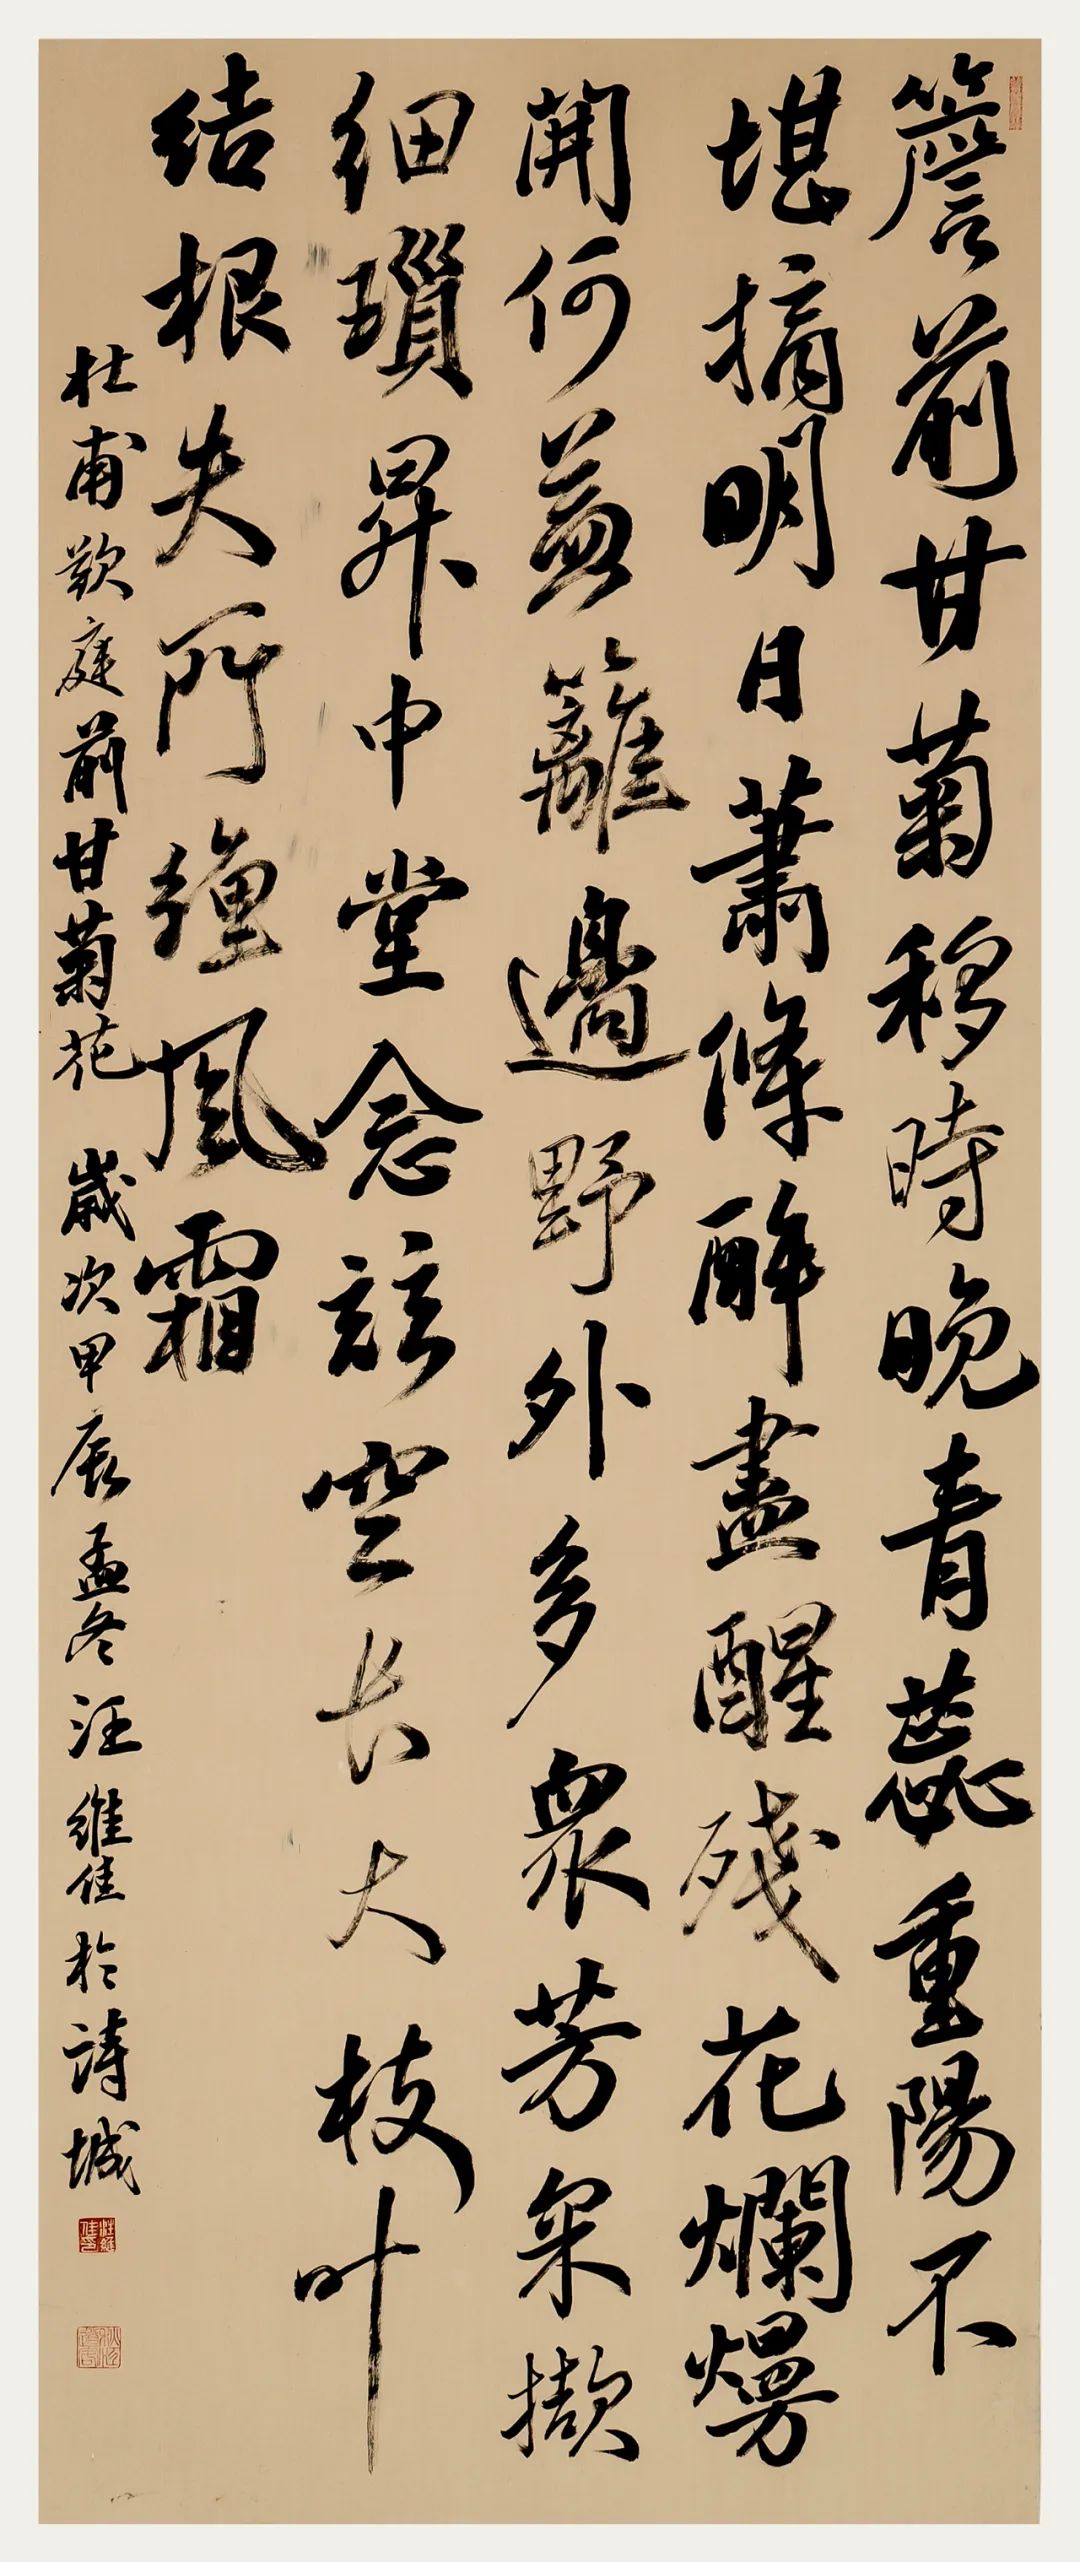 簷前甘菊移時晚青蕊重陽不
堪摘明日蕭條醉盡醒殘花爛熳
開何益籬邊野外多衆芳采擷
细瑣昇中堂念玆空长大枝叶
结根失所纏風霜
杜甫歎庭前甘菊花 歲次甲辰孟冬汪維佳於詩城